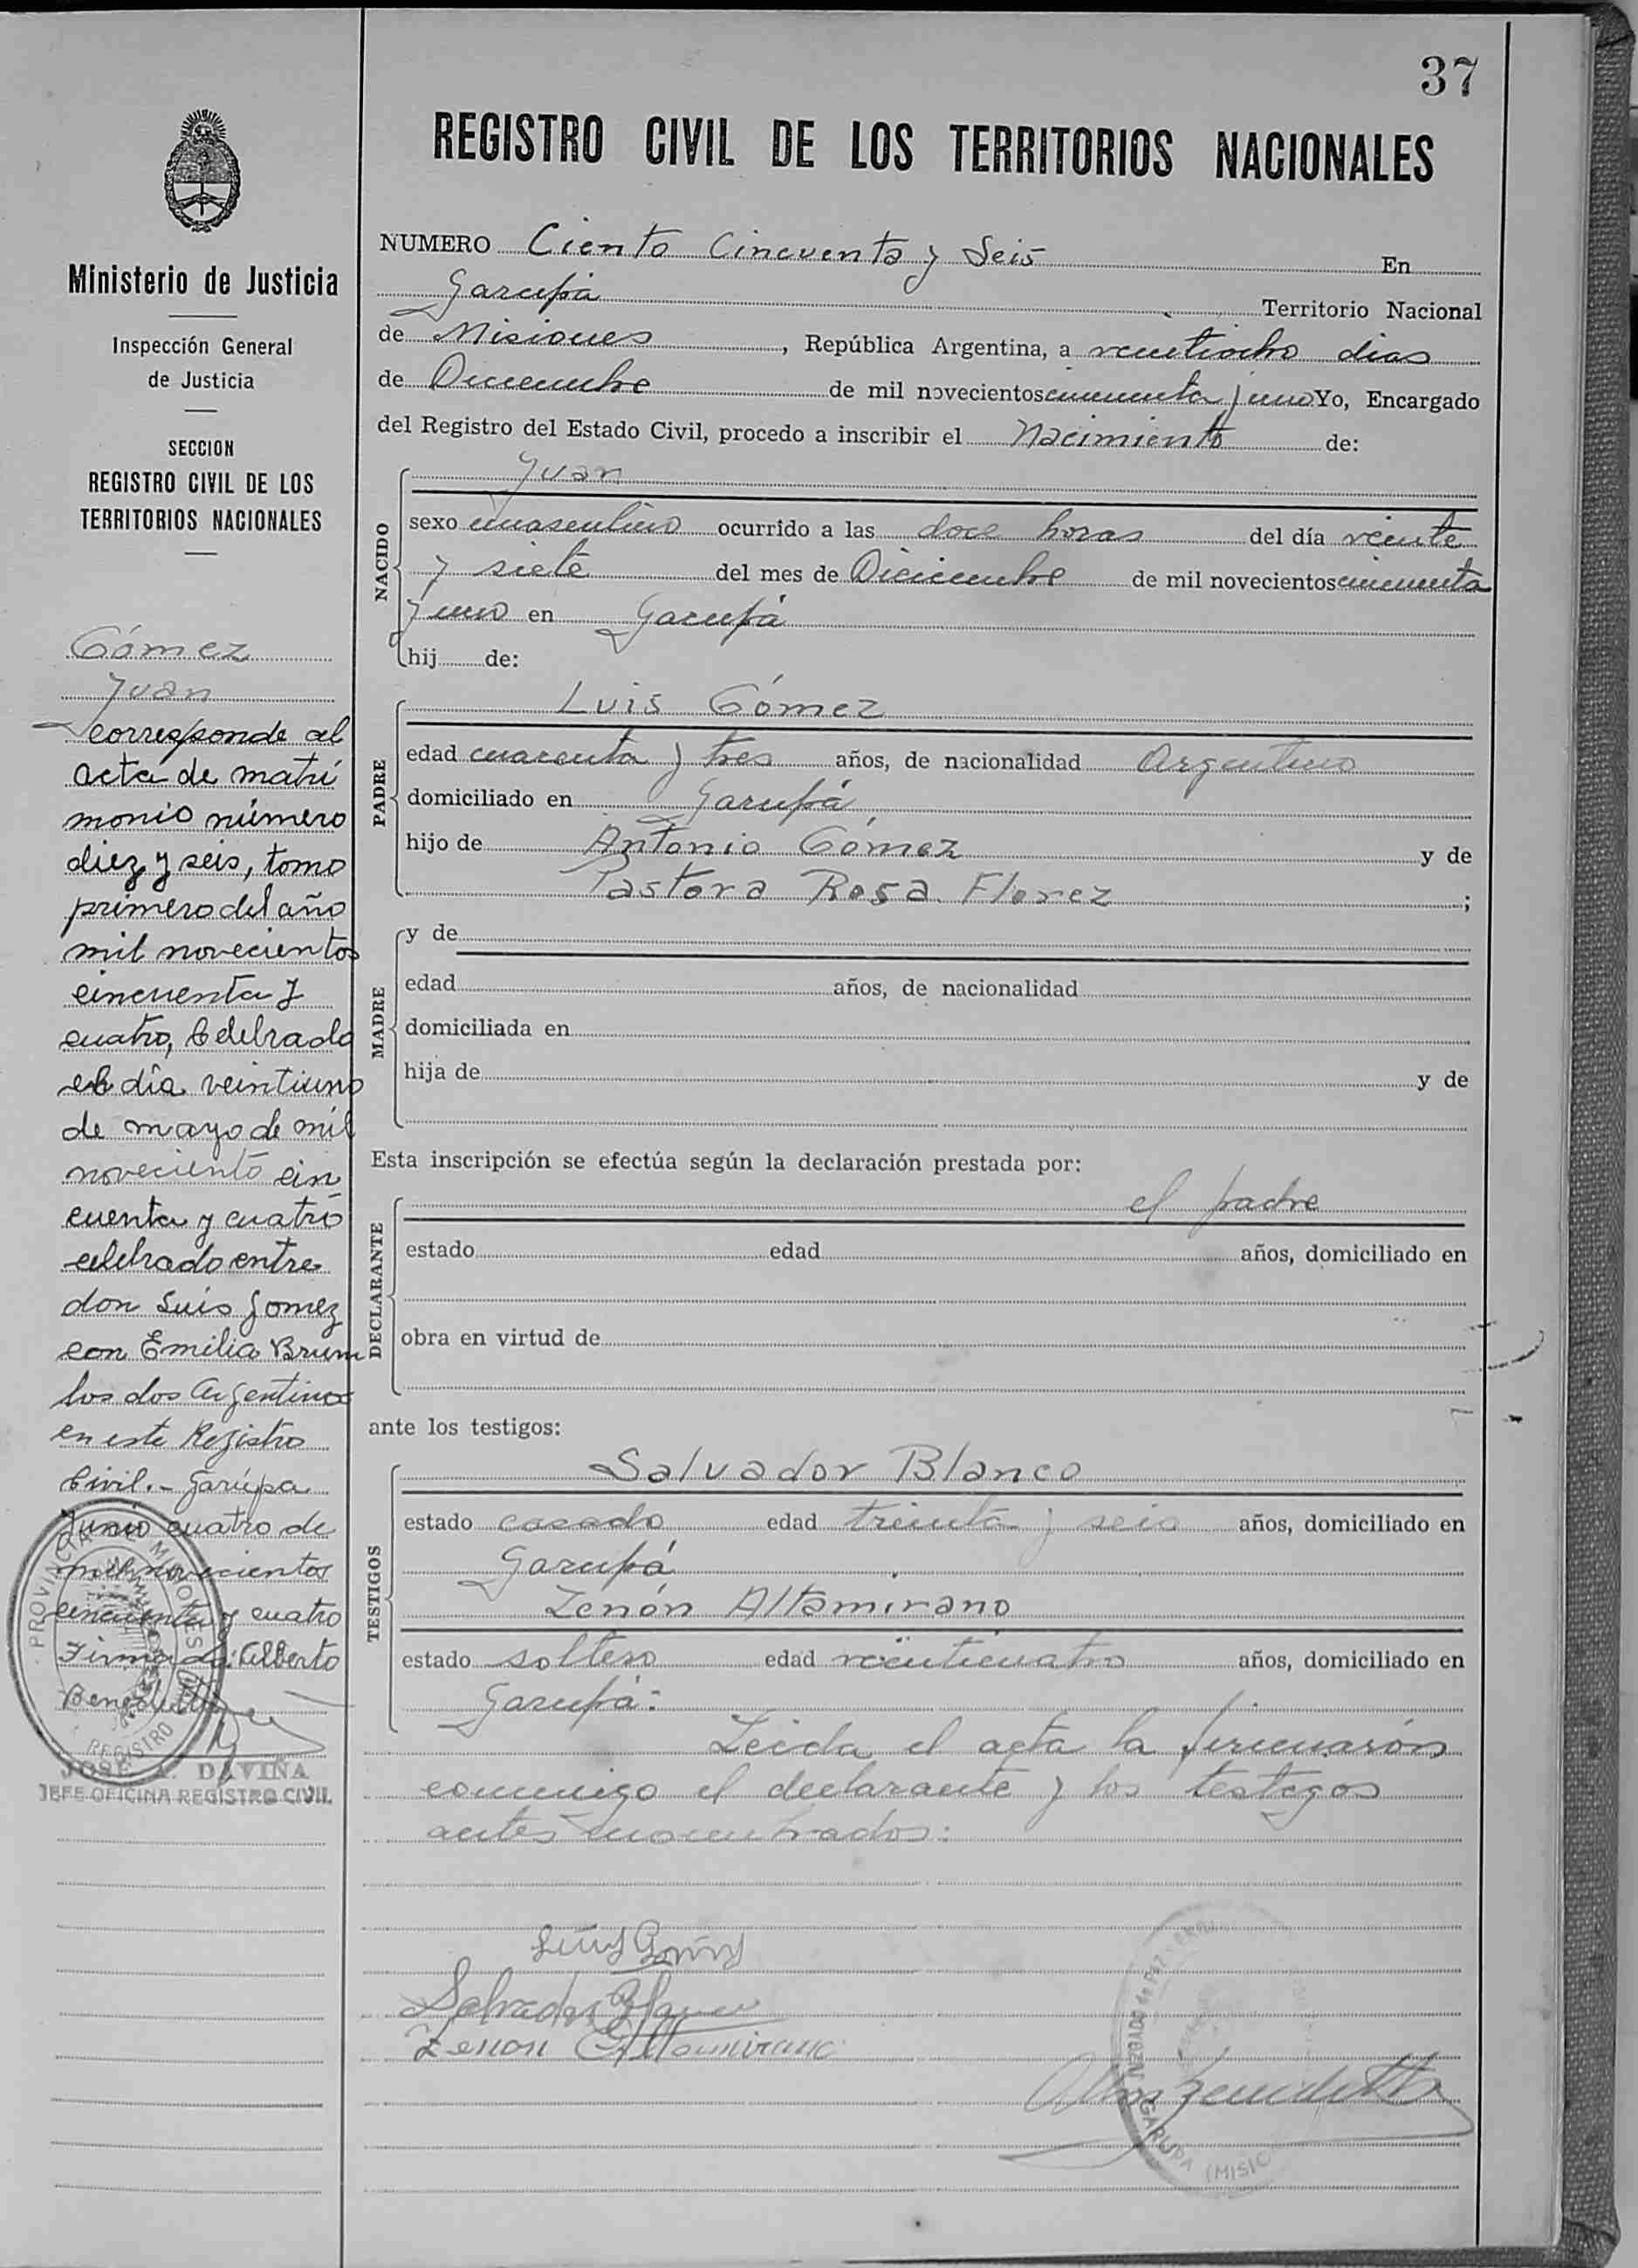 37
REGISTRO CIVIL DE LOS TERRITORIOS NACIONALES
Ministerio de Justicia
Inspección General
de Justicia
SECCION
REGISTRO CIVIL DE LOS
TERRITORIOS NACIONALES
Gómez
Juan
corresponde al
acta de matri
monio número
diez y seis, tomo
primero del año
mil novecientos
cincuenta y
cuatro, Celebrado
el día veintiuno
de mayo de mil
noveciento cin
cuenta y cuatro
celebrado entre
don Luis Gomez
con Emilia Brum
los dos Argentinos
en este Registro
Civil.- Garupa
Junio cuatro de
mil novecientos
cincuenta y cuatro
Firmado: Alberto
Benedetti
PROVINCIA DE MISIONES
REGISTRO
JOSE A. DAVIÑA
JEFE OFICINA REGISTRO CIVIL
NUMERO Ciento Cincuenta y Seis En
Garupá Territorio Nacional
de Misiones, República Argentina, a veintiocho dias
de Diciembre de mil novecientos cincuenta y uno Yo, Encargado
del Registro del Estado Civil, procedo a inscribir el Nacimiento de:
NACIDO
Juan
sexo masculino ocurrido a las doce horas del día veinte
y siete del mes de Diciembre de mil novecientos cincuenta
y uno en Garupá
hij de:
PADRE
Luis Gómez
edad cuarenta y tres años, de nacionalidad Argentino
domiciliado en Garupá
hijo de Antonio Gómez y de
Pastora Rosa Florez ;
MADRE
y de
edad años, de nacionalidad
domiciliada en
hija de y de
Esta inscripción se efectúa según la declaración prestada por:
DECLARANTE
el padre
estado edad años, domiciliado en
obra en virtud de
ante los testigos:
TESTIGOS
Salvador Blanco
estado casado edad treinta y seis años, domiciliado en
Garupá
Zenón Altamirano
estado soltero edad veinticuatro años, domiciliado en
Garupá:
Leida el acta la firmaron
conmigo el declarante y los testigos
antes nombrados:
Luis Gómez
Salvador Blanco
Zenon Altamirano
JUZGADO de PAZ
GARUPA (MISIO